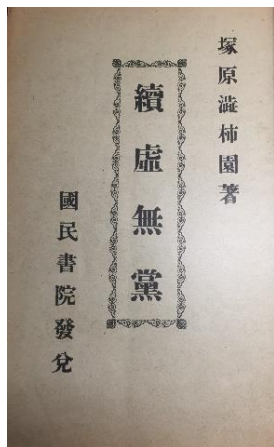 塚原澁柿園著
續虛無黨
國民書院發兌